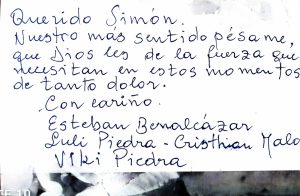 Querido Simón.
Nuestro más sentido pésame,
que Dios les de la fuerza que
necesitan en estos momentos
de tanto dolor.
Con cariño.
Esteban Benalcázar
Luli Piedra - Cristhian Malo
Viki Piedra